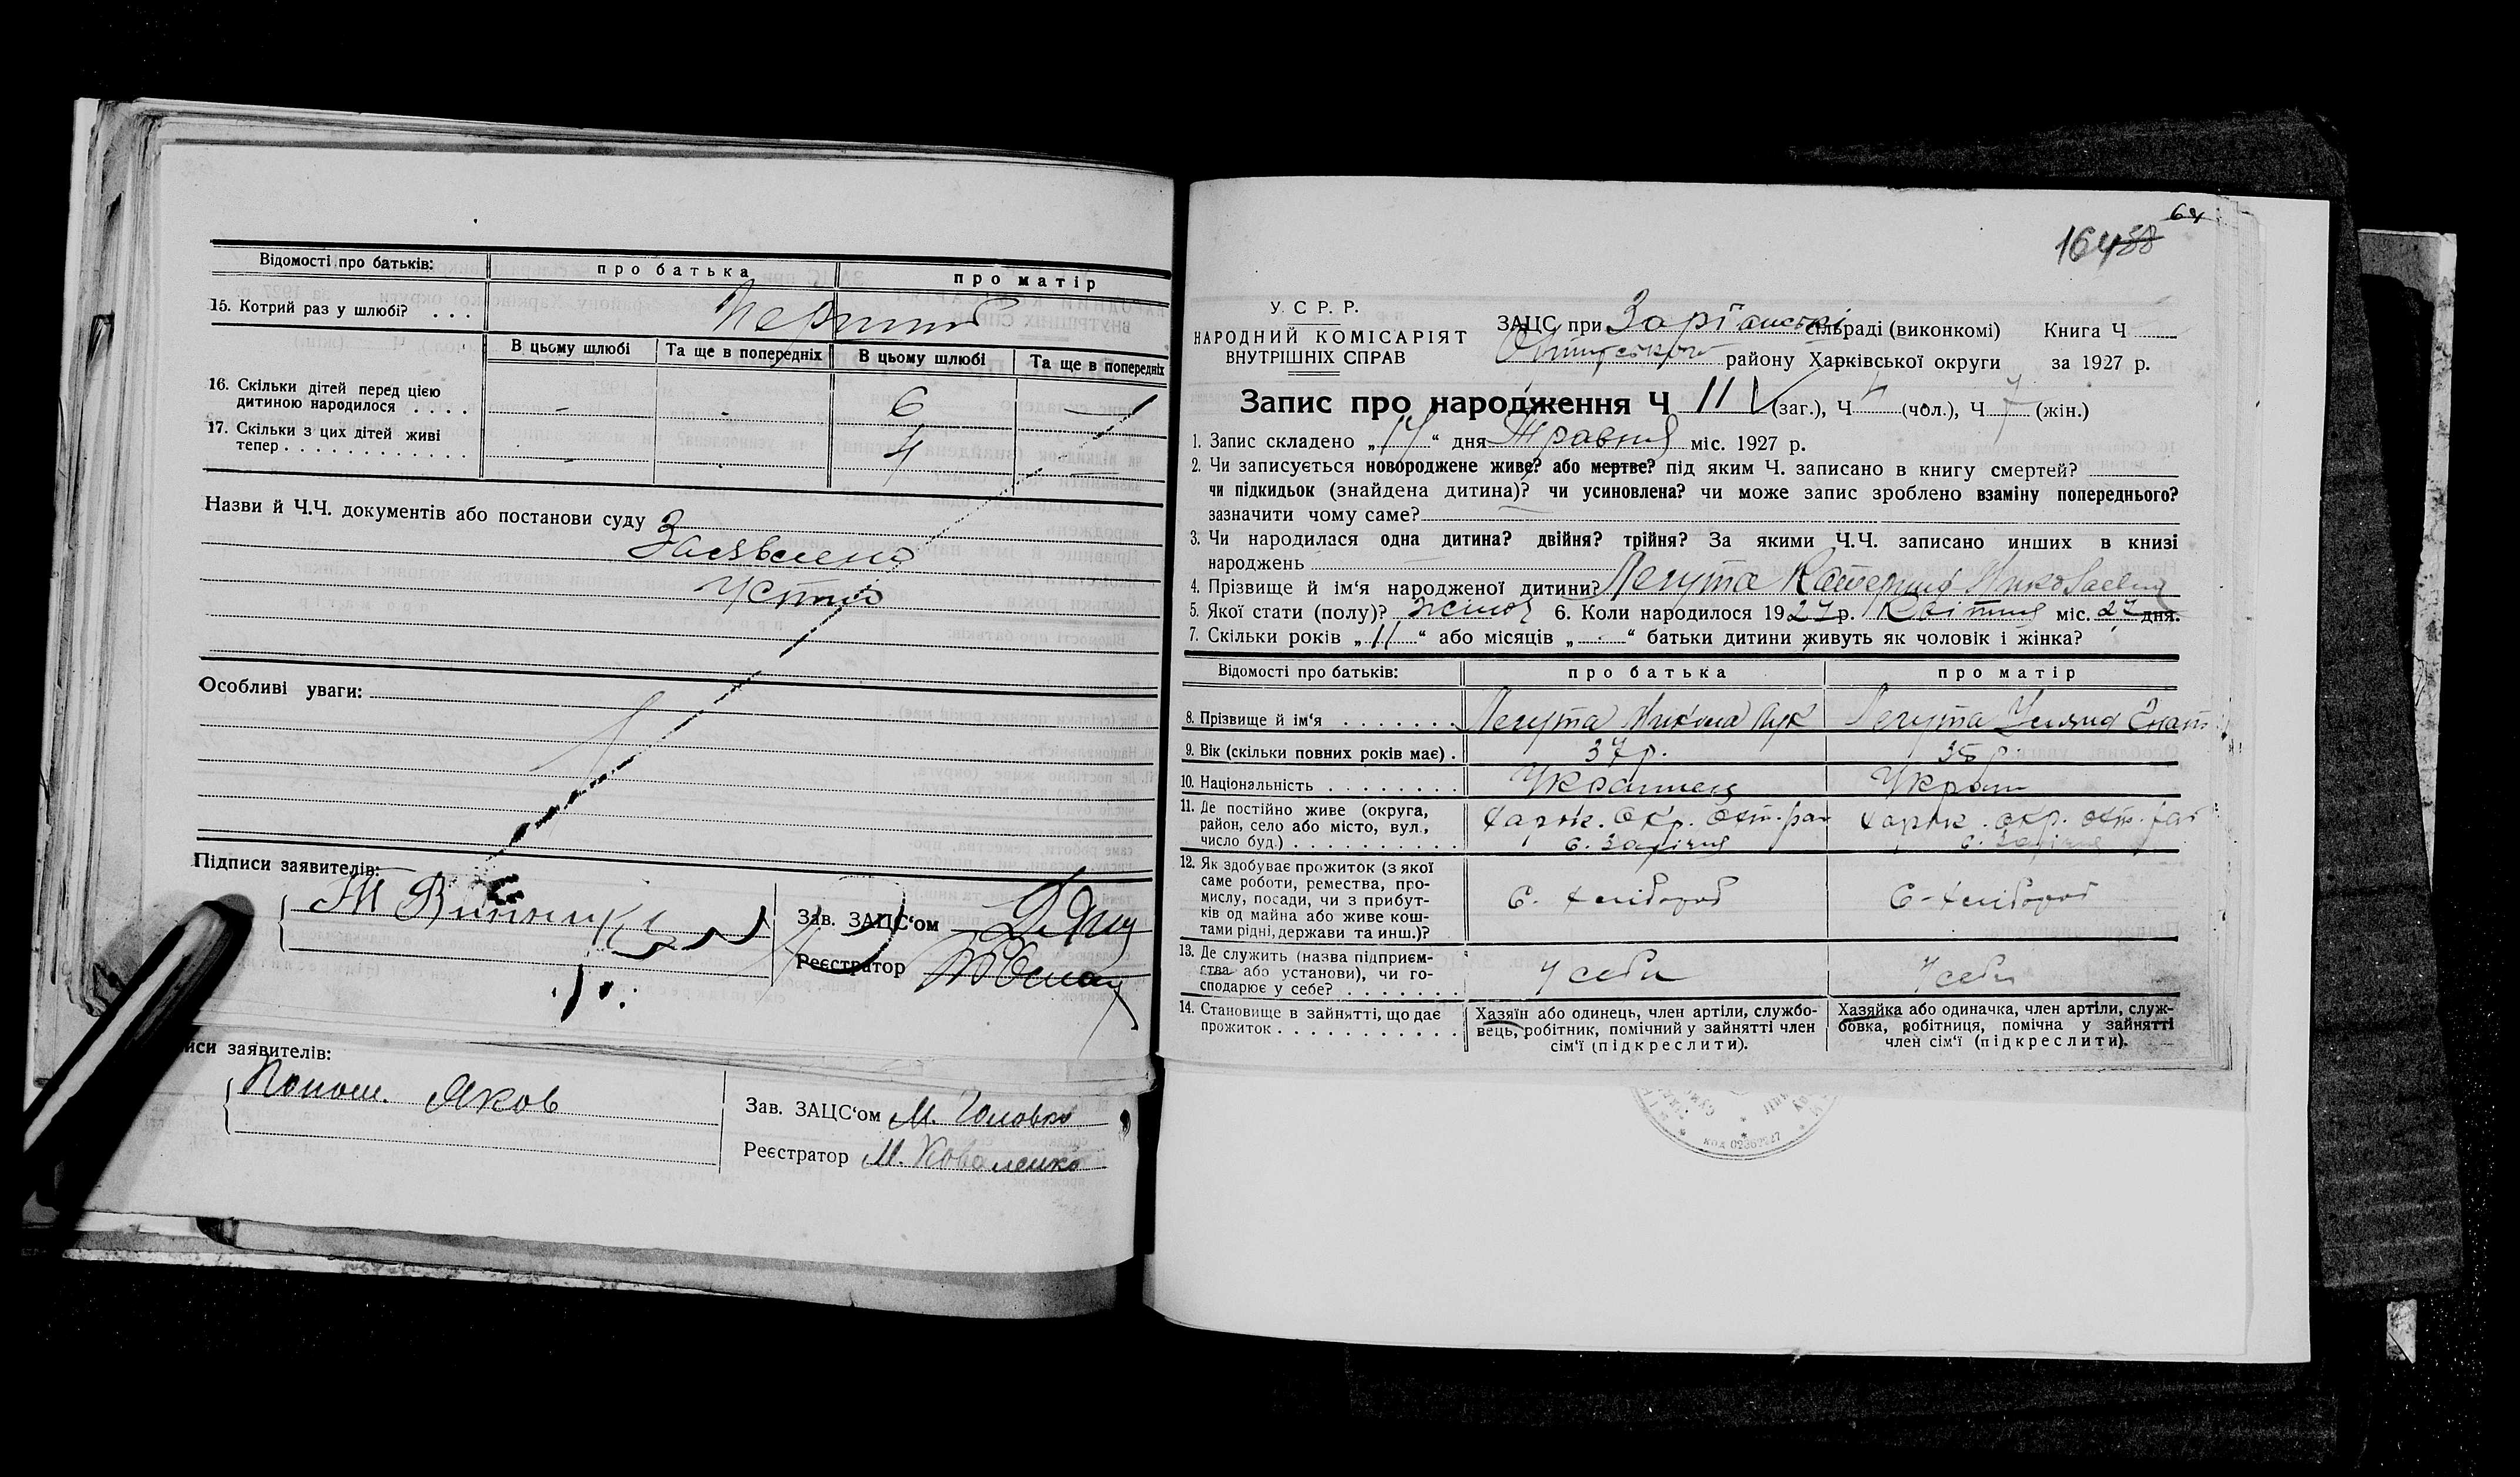 Відомості про батьків: про батька про матір
15. Котрий раз у шлюбі? . . .
В цьому шлюбі Та ще в попередніх В цьому шлюбі Та ще в попередніх
16. Скільки дітей перед цією
дитиною народилося . . . . - - 6 -
17. Скільки з цих дітей живі
тепер . . . . . . . . . . . . - - 4
Назви й Ч.Ч. документів або постанови суду
Заявлено
Устно
Особливі уваги:
Підписи заявителів:
Зав. ЗАЦС‘ом
Реєстратор
иси заявителів:
Яков
Зав. ЗАЦС‘ом М. Головко
Реєстратор М. Коваленко
64
164 38
У. С. Р. Р.
НАРОДНИЙ КОМІСАРІЯТ
ВНУТРІШНІХ СПРАВ
ЗАЦС при сільраді (виконкомі) Книга Ч
району Харківської округи за 1927 р.
Запис про народження Ч 11 (заг.), Ч (чол.), Ч 7 (жін.)
1. Запис складено „14“ дня Травня міс. 1927 р.
2. Чи записується новороджене живе? або мертве? під яким Ч. записано в книгу смертей?
чи підкидьок (знайдена дитина)? чи усиновлена? чи може запис зроблено взаміну попереднього?
зазначити чому саме?
3. Чи народилася одна дитина? двійня? трійня? За якими Ч.Ч. записано инших в книзі
народжень
4. Прізвище й ім‘я народженої дитини? Легута Катерина Николаевна
5. Якої стати (полу)? жіноч 6. Коли народилося 1927 р. Квітня міс. 27 дня.
7. Скільки років „11“ або місяців „-“ батьки дитини живуть як чоловік і жінка?
Відомості про батьків: про батька про матір
8. Прізвище й ім‘я . . . . . . . Легута Микола Лук Легута Уляна Гнат
9. Вік (скільки повних років має) . 37 р. 35 р
10. Національність . . . . . . . . Українець Украін
11. Де постійно живе (округа,
район, село або місто, вул.,
число буд.) . . . . . . . . . .
Харьк. окр. Охт. рай Харьк. окр. охт. рай
12. Як здобуває прожиток (з якої
саме роботи, ремества, про-
мислу, посади, чи з прибут-
ків од майна або живе кош-
тами рідні, держави та инш.)?
С. хлібороб С-хлібороб
13. Де служить (назва підприєм-
ства або установи), чи го-
сподарює у себе? . . . . . . .
У себе У себе
14. Становище в зайнятті, що дає
прожиток . . . . . . . . . . .
Хазяїн або одинець, член артіли, службо-
вець, робітник, помічний у зайнятті член
сім‘ї (підкреслити).
Хазяйка або одиначка, член артіли, служ-
бовка, робітниця, помічна у зайнятті
член сім‘ї (підкреслити).